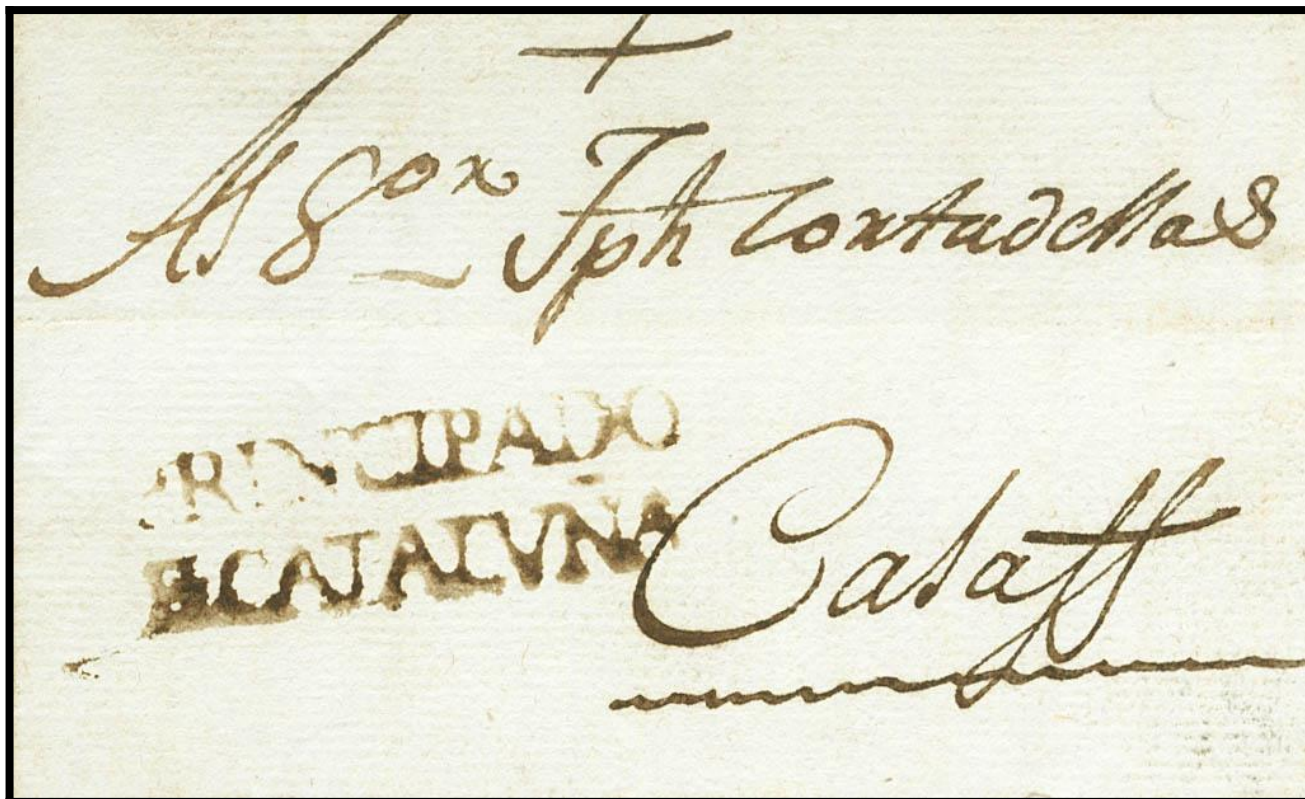 Al S^or Jph Cortadellas
PRINCIPADO
CATALVÑA
Calaff